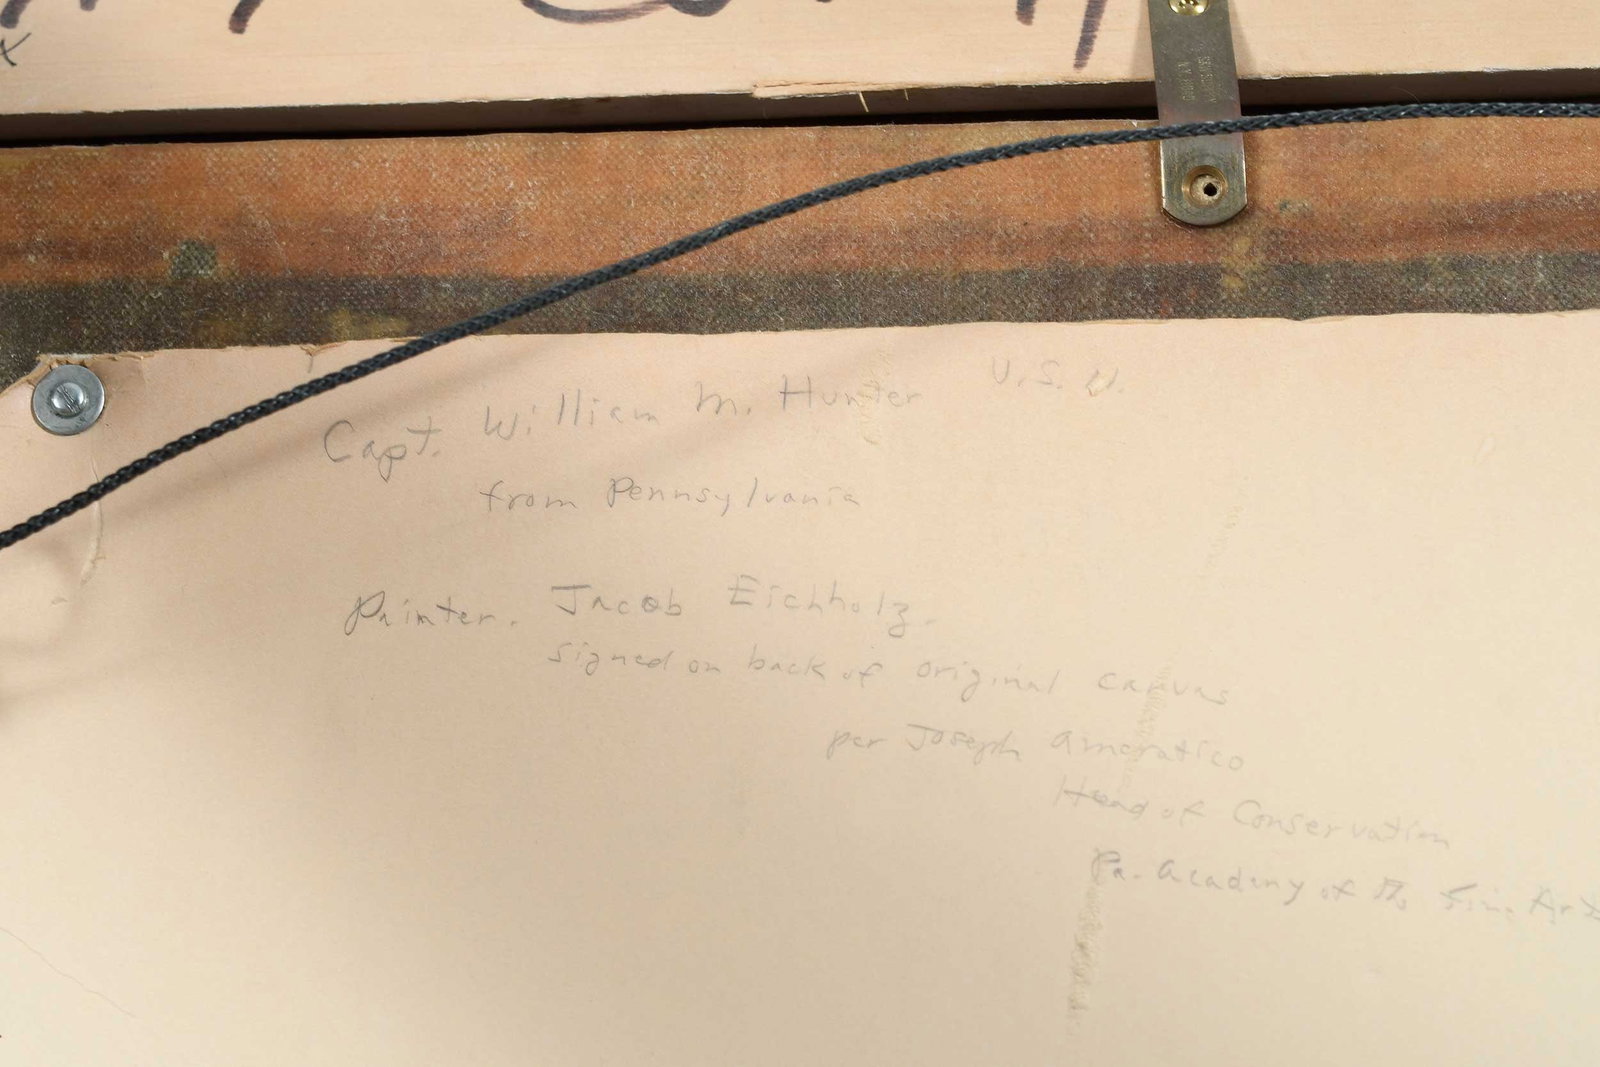 Capt. William M. Hunter U.S.N.
from Pennsylvania
Painter. Jacob Eichholz.
signed on back of original canvas
per Joseph Amoratico
Head of Conservation
Pa. Academy of the Fine Arts